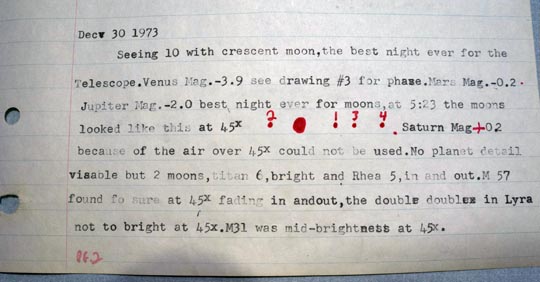 Decv 30 1973
Seeing 10 with crescent moon,the best night ever for the
Telescope.Venus Mag.-3.9 see drawing #3 for phase.Mars Mag.-0.2.
Jupiter Mag.-2.0 best night ever for moons,at 5:23 the moons
looked like this at 45x 2 1 3 4 . Saturn Mag+02
because of the air over 45x could not be used.No planet detail
visable but 2 moons,titan 6,bright and Rhea 5,in and out.M 57
found fo sure at 45x fading in andout,the double doublex in Lyra
not to bright at 45x.M31 was mid-brightness at 45x.
PG.2